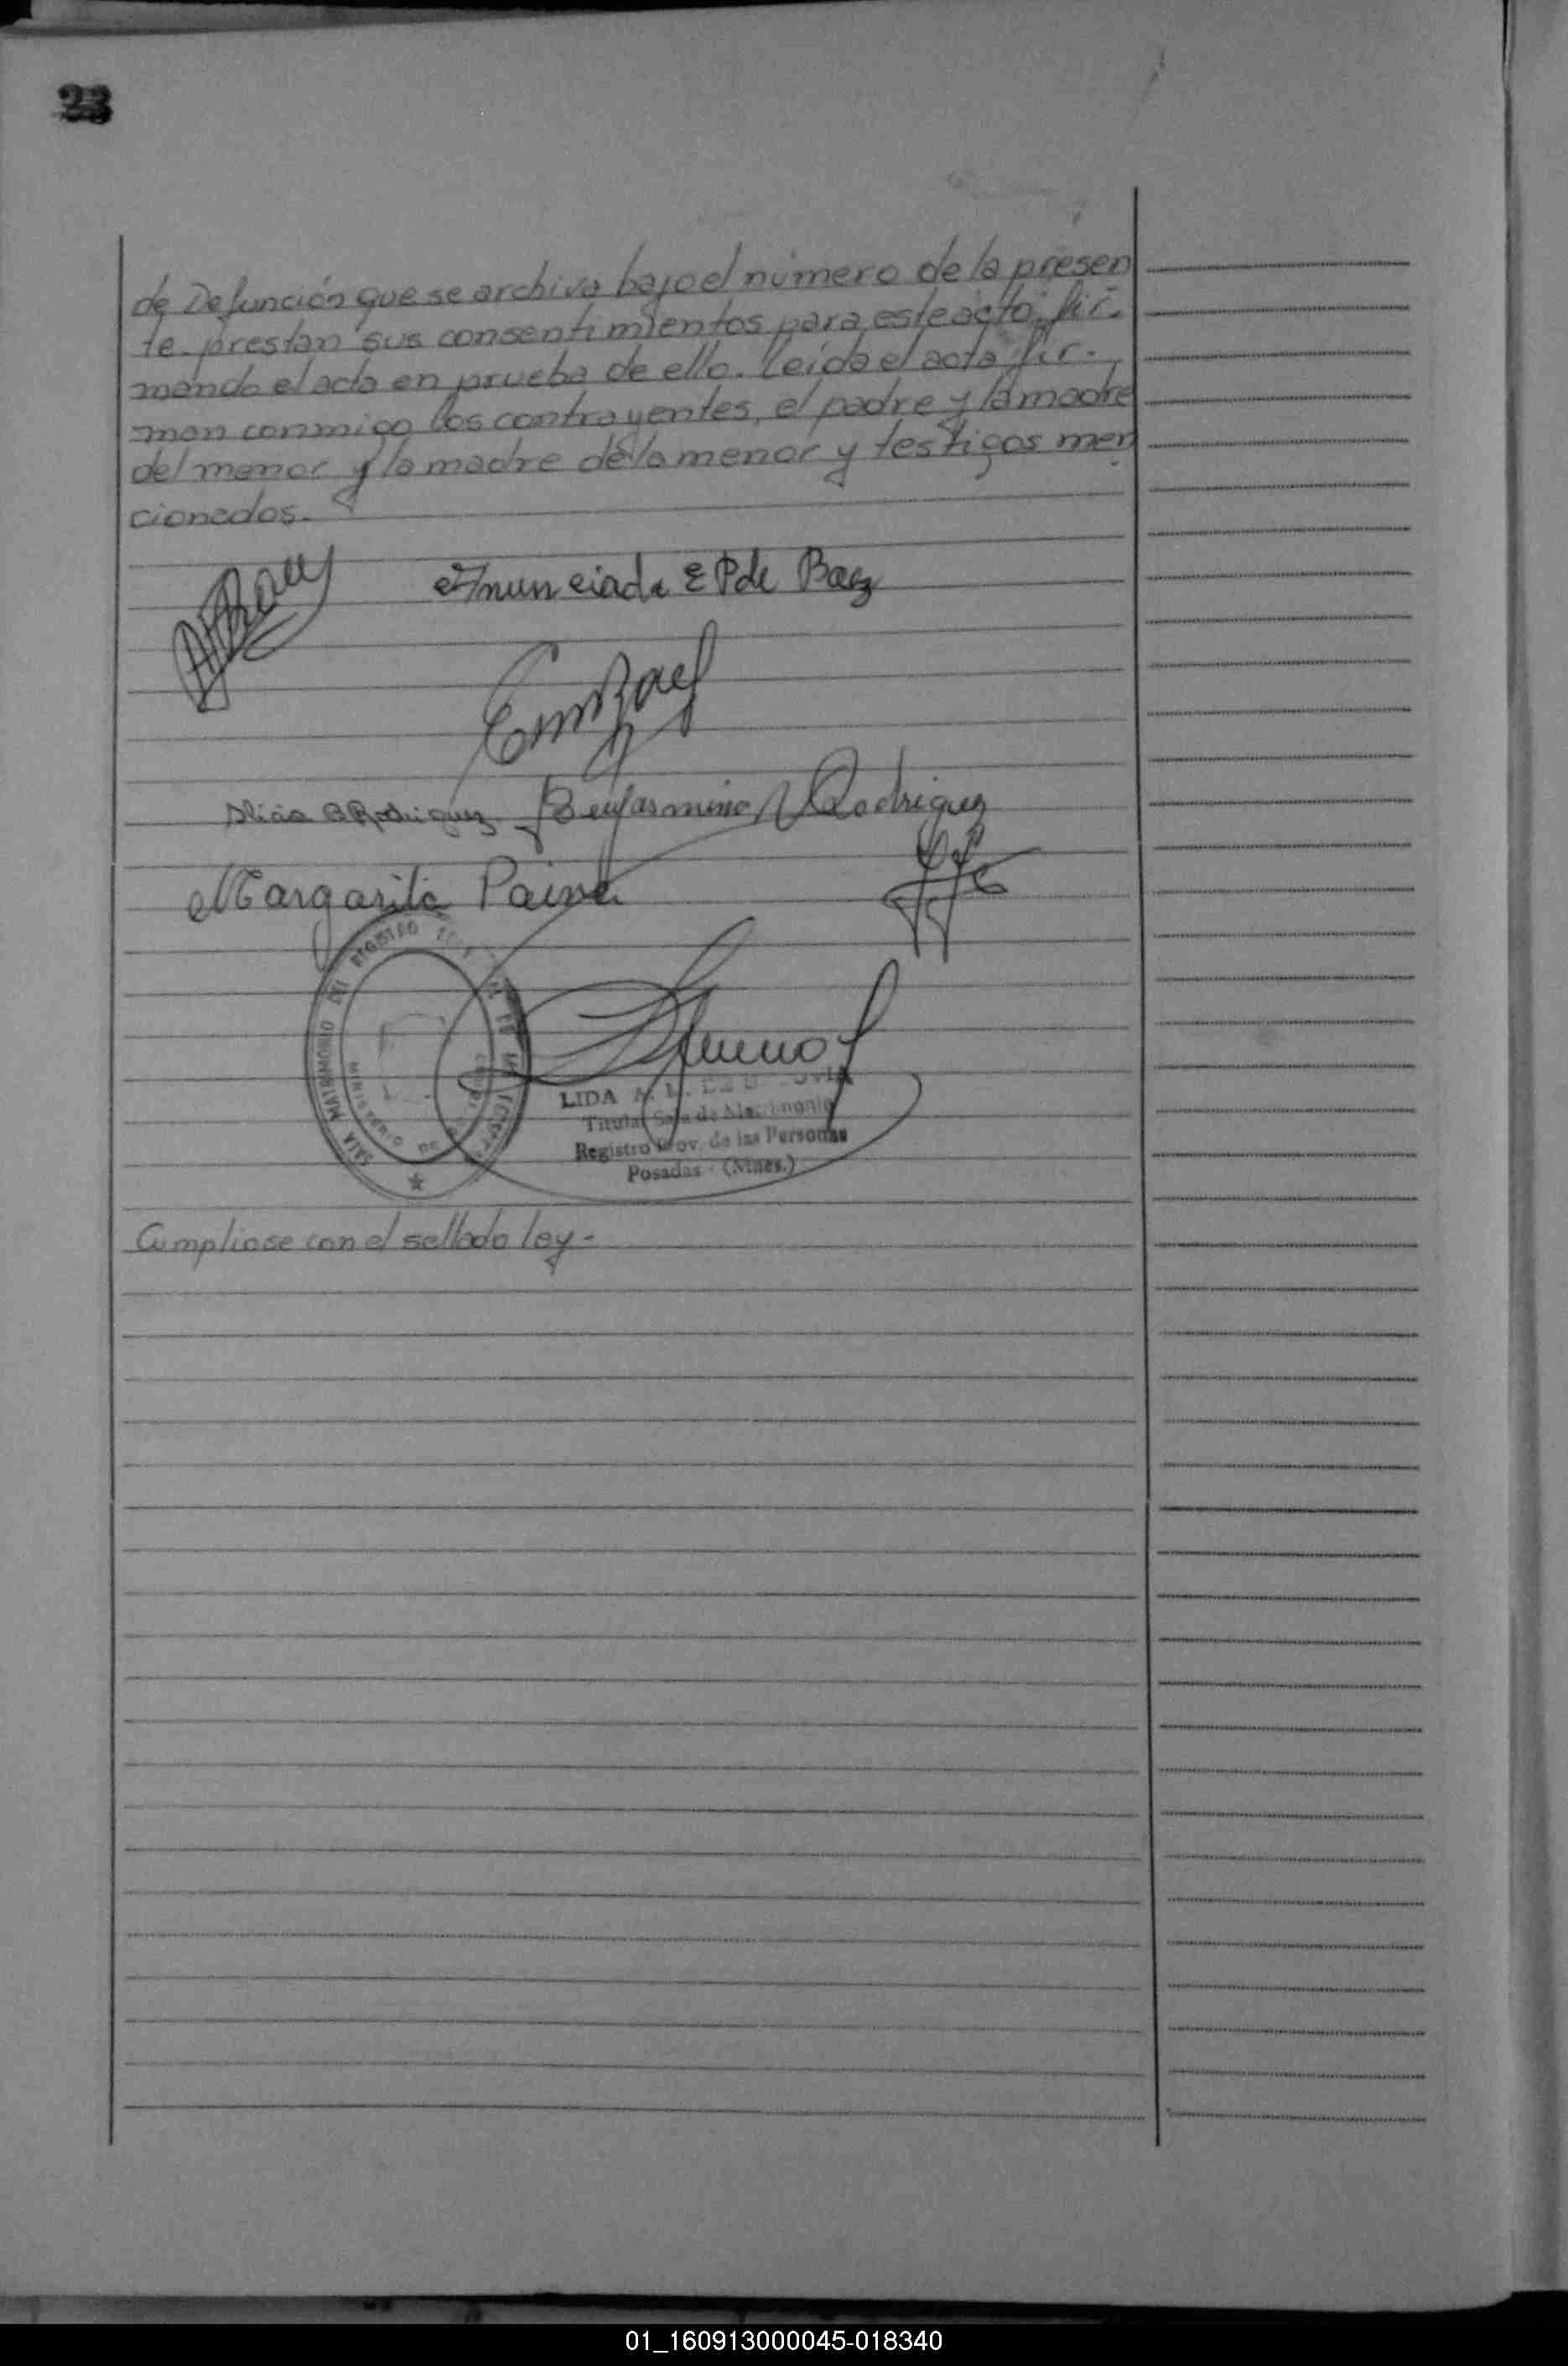 23
de Defunción que se archiva bajo el número de la presen
te prestan sus consentimientos para este acto, fir.
mando el acta en prueba de ello. Leída el acta fir-
man conmigo los contrayentes, el padre y la madre
del menor y la madre de la menor y testigos men
cionados.-
Anunciada E P de Baez
Alicia B Rodriguez Benjasmino Rodriguez
Margarita
SALA MATRIMONIO DEL REGISTRO
MINISTERIO DE
LIDA
Titular Sala de Matrimonio
Registro Prov. de las Personas
Posadas - (Mnes.)
Cumpliose con el sellado ley-
01_160913000045-018340